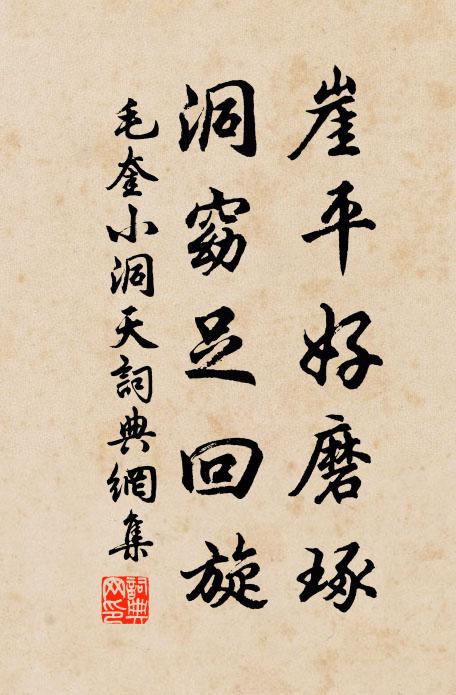 崖平好磨琢
洞窈足回旋
毛奎小洞天詞典網集
詞典网印